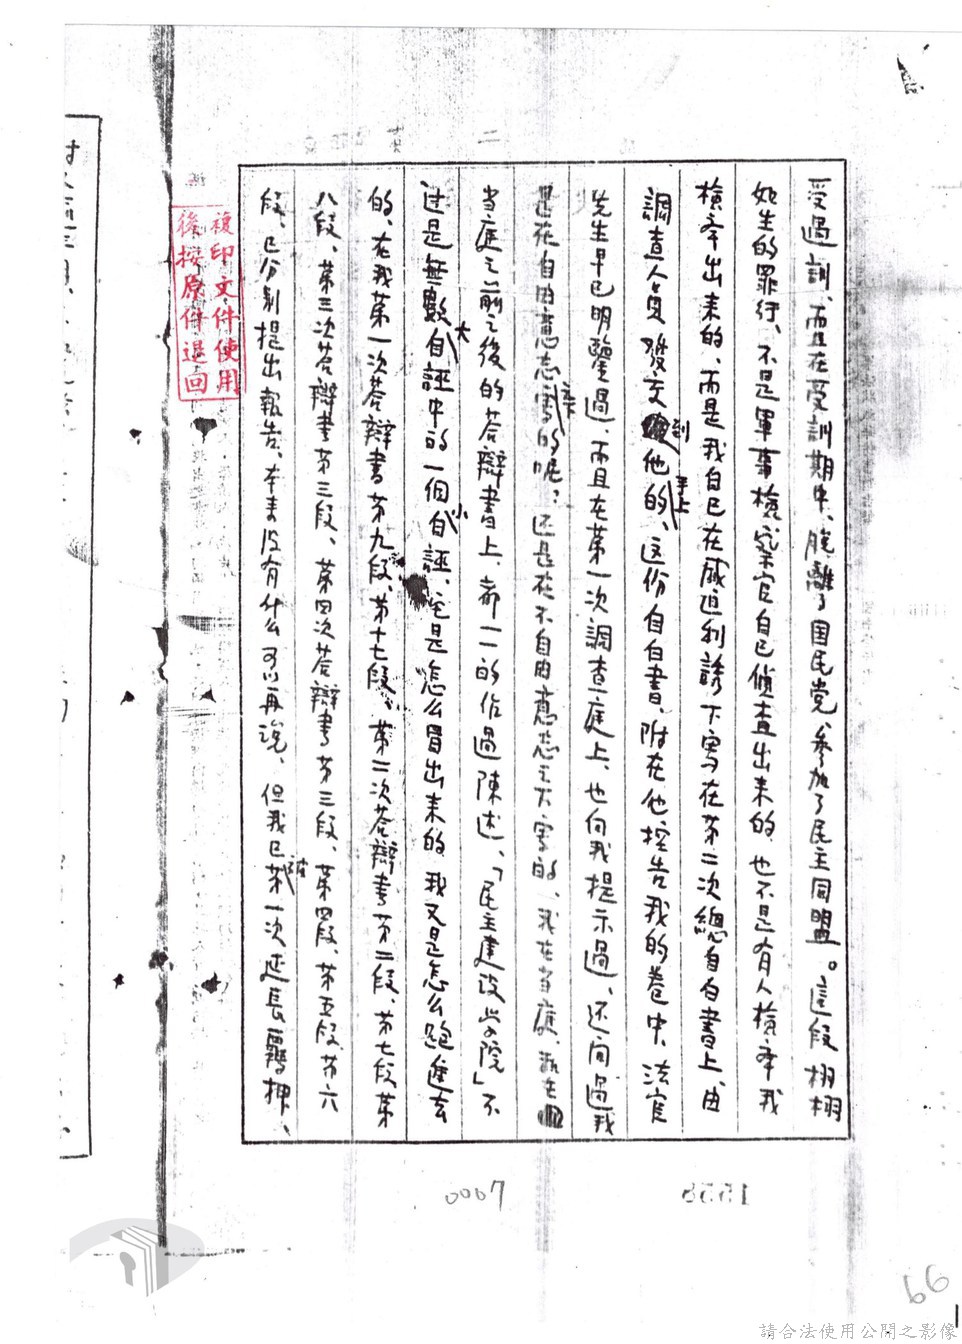 受過訓、而且在受訓期中、脫離了国民党、參加了民主同盟。這段栩栩
如生的罪行、不是軍事檢察官自己偵查出来的、也不是有人檢举我
檢举出来的、而是我自已在威迫利誘下寫在第二次總自白書上、由
調查人員發交到他手上的、这份自白書、附在他控告我的卷中、法官
先生早已明鑒過、而且在第一次調查庭上、也向我提示過、还问過我
是在自由意志下寫的呢？还是在不自由意志之下寫的、我在当庭、
当庭之前之後的答辯書上、都一一的作過陳述、「民主建設学院」不
过是無數大自誣中的一個小自誣、它是怎么冒出来的、我又是怎么跑進去
的、在我第一次答辯書第九段、第十七段、第二次答辯書第二段、第七段、第
八段、第三次答辯書第三段、第四次答辯書第三段、第四段、第五段、第六
段、已分别提出報告、本来没有什么可以再说、但我已被第一次延長羈押、
複印文件使用
後按原件退回
0007
1558
66
請合法使用公開之影像